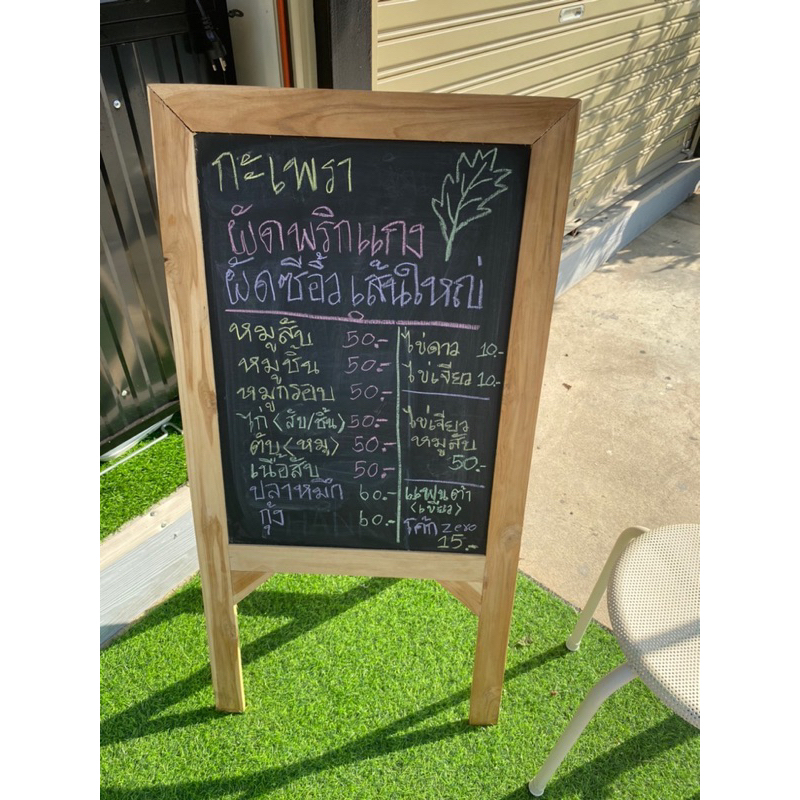 กะเพรา
ผัดพริกแกง
ผัดซีอิ้วเส้นใหญ่
หมูสับ 50.-
หมูชิ้น 50.-
หมูกรอบ 50.-
ไก่ <สับ/ชิ้น> 50.-
ตับ <หมู> 50.-
เนื้อสับ 50.-
ปลาหมึก 60.-
กุ้ง 60.-
ไข่ดาว 10.-
ไข่เจียว 10.-
ไข่เจียว
หมูสับ
50.-
<เขียว>
โค้ก zero
15.-